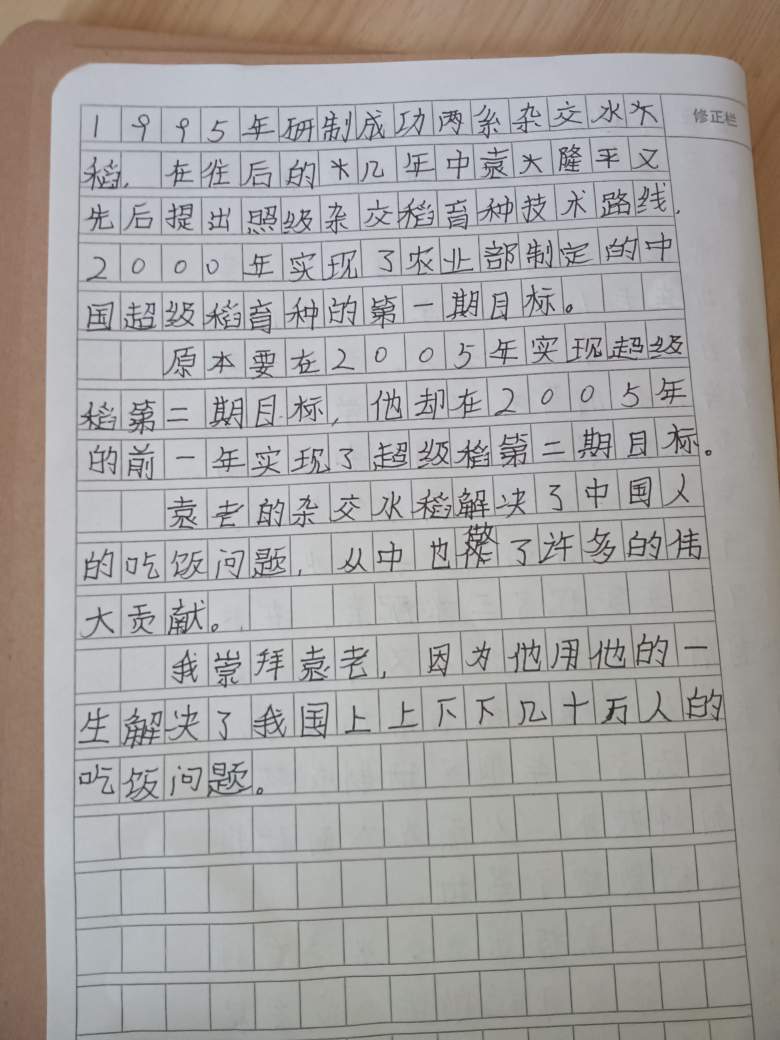 1995年研制成功两系杂交水
修正栏
稻，在往后的几年中袁隆平又
先后提出照级杂交稻育种技术路线，
2000年实现了农业部制定的中
国超级稻育种的第一期目标。
原本要在2005年实现超级
稻第二期目标，他却在2005年
的前一年实现了超级稻第二期目标。
袁老的杂交水稻解决了中国人
的吃饭问题，从中也做了许多的伟
大贡献。
我崇拜袁老，因为他用他的一
生解决了我国上上下下几十万人的
吃饭问题。